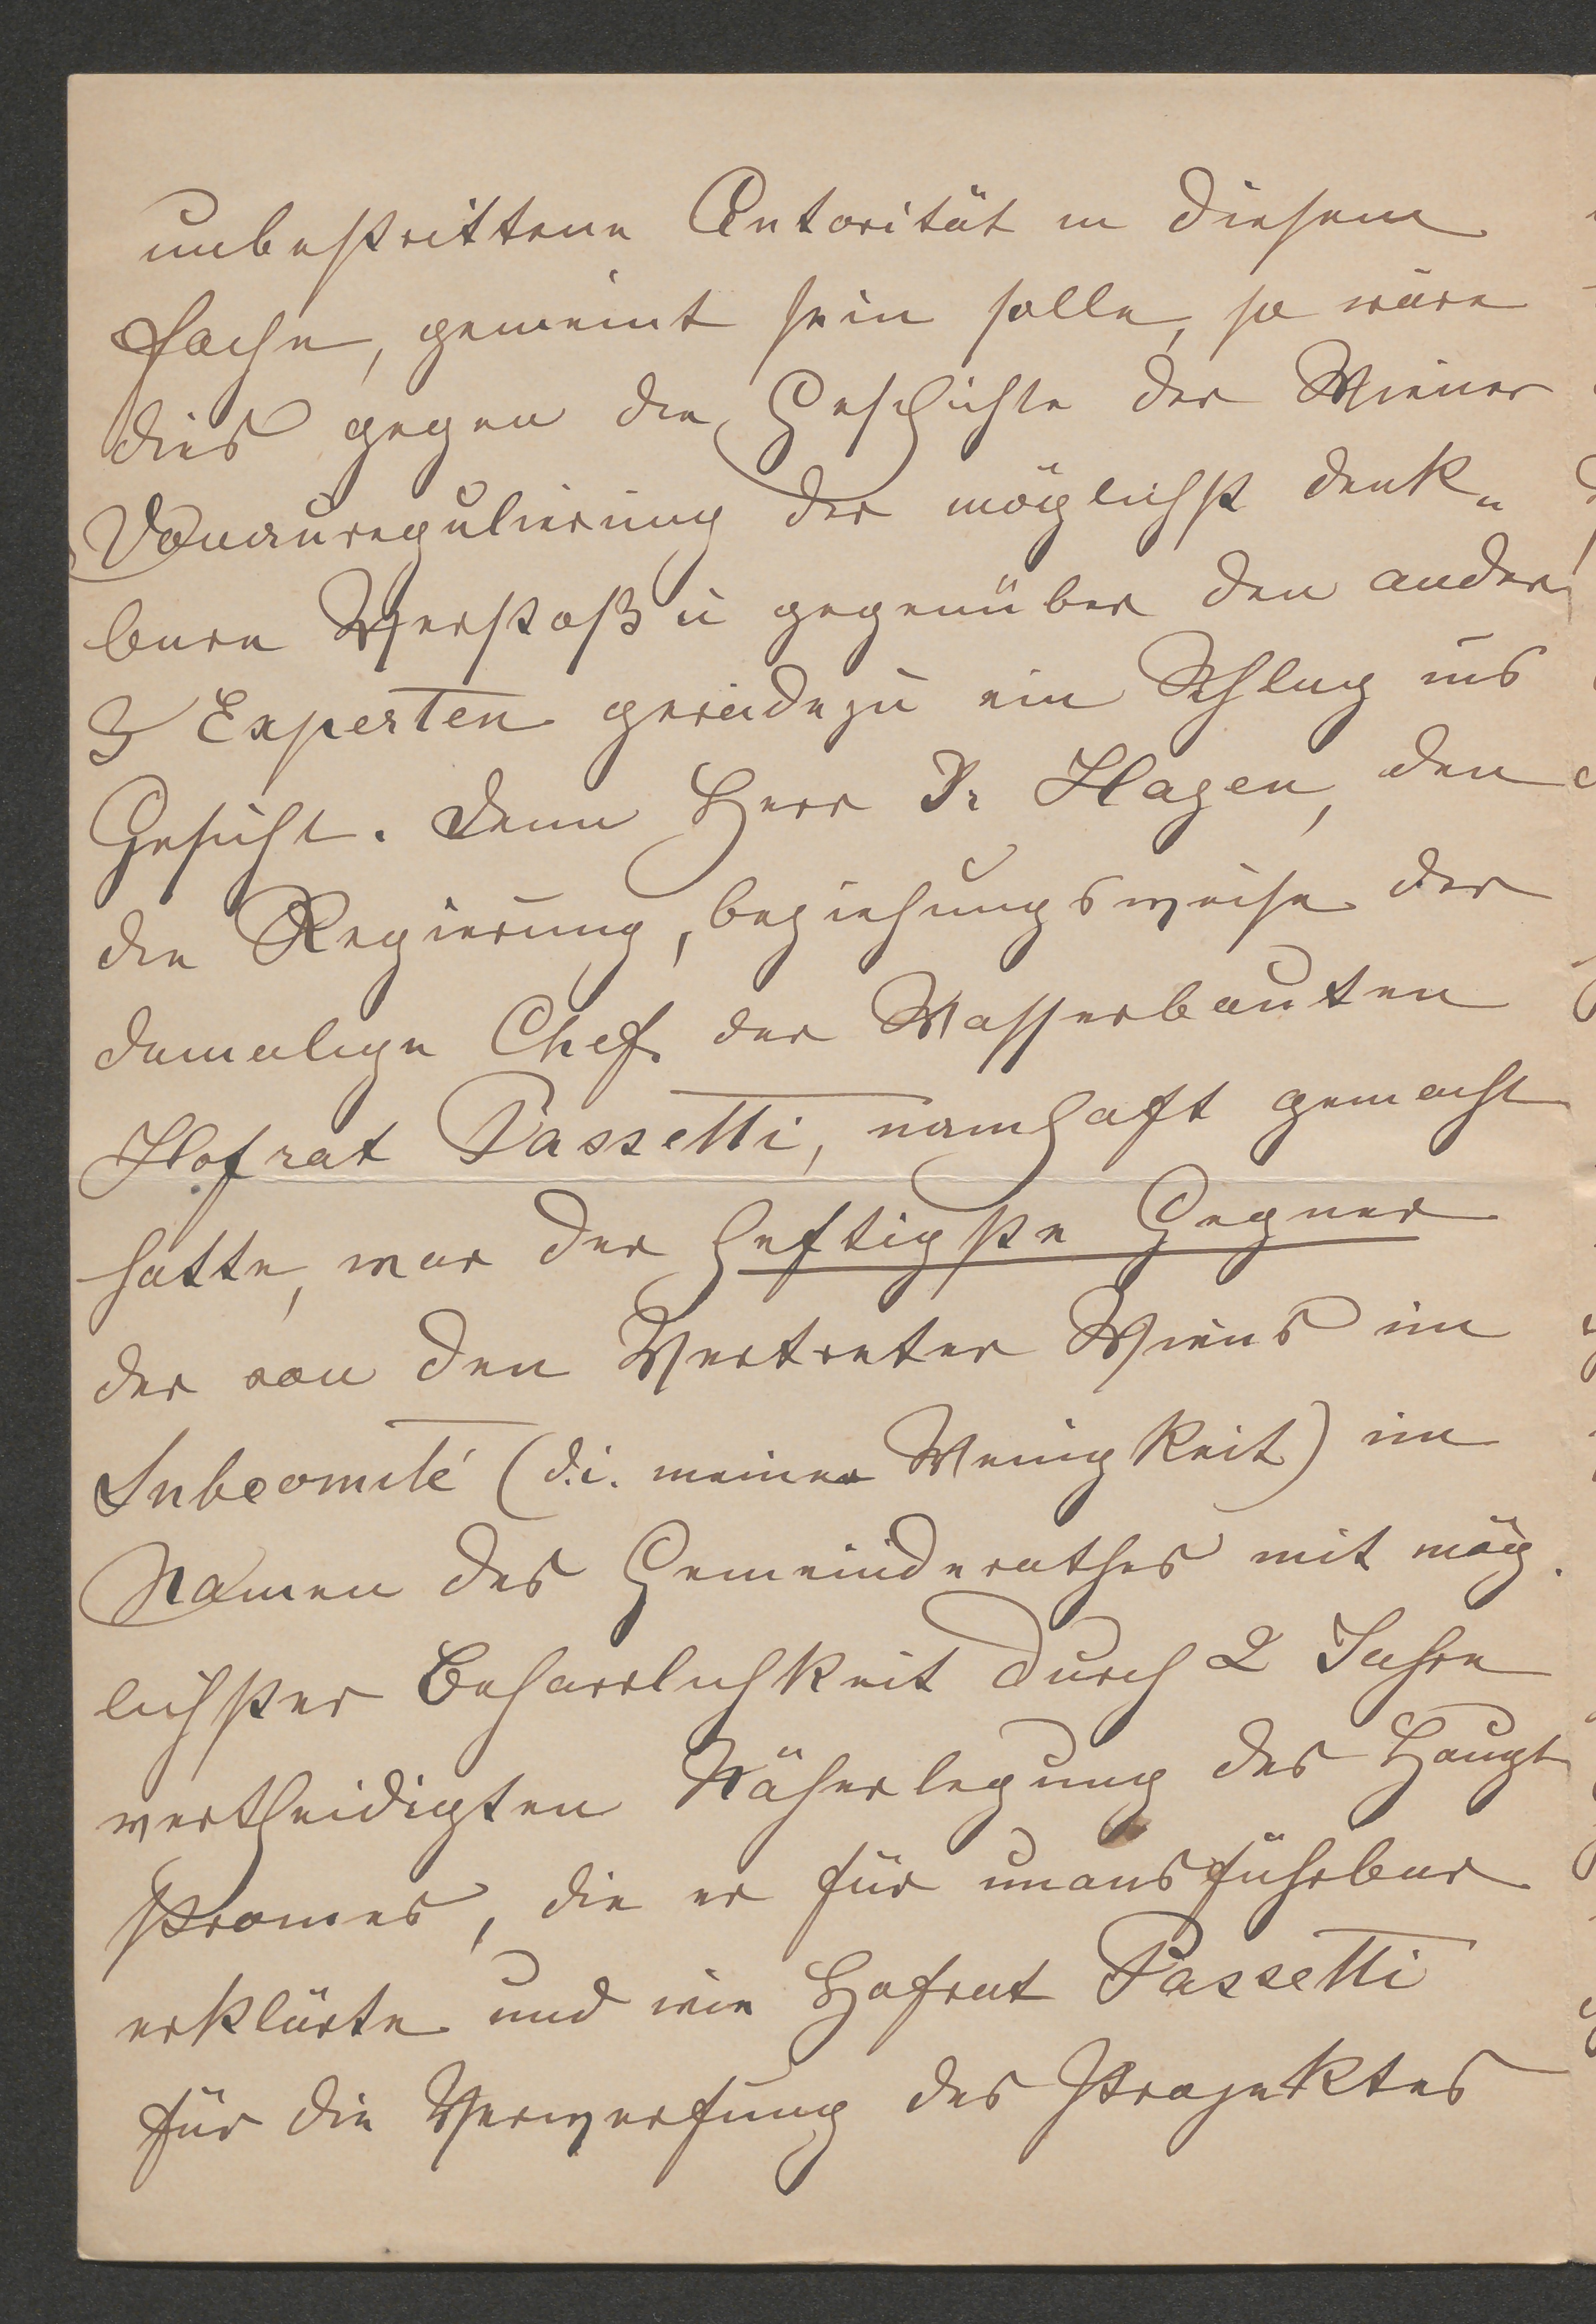 unbestrittene Autorität in diesem
Fache, gemeint sein solle, so wäre
dies gegen die Geschichte der Wiener
Donauregulierung der möglichst denk-
bare Verstoß u gegenüber den andern
3 Experten geradezu ein Schlag ins
Gesicht. Denn Herr Dr Hagen, den
die Regierung, beziehungsweise der
damalige Chef der Wasserbauten
Hofrat Passetti, namhaft gemacht
hatte, war der heftigste Gegner
der von den Vertreter Wiens im
Subcomité (d.i. meiner Wenigkeit) im
Namen des Gemeinderathes mit mög-
lichster Beharrlichkeit durch 2 Jahre
vertheidigten Näherlegung des Haupt
stromes, die er für unausführbar
erklärte und wie Hofrat Passetti
für die Verwerfung des Projektes